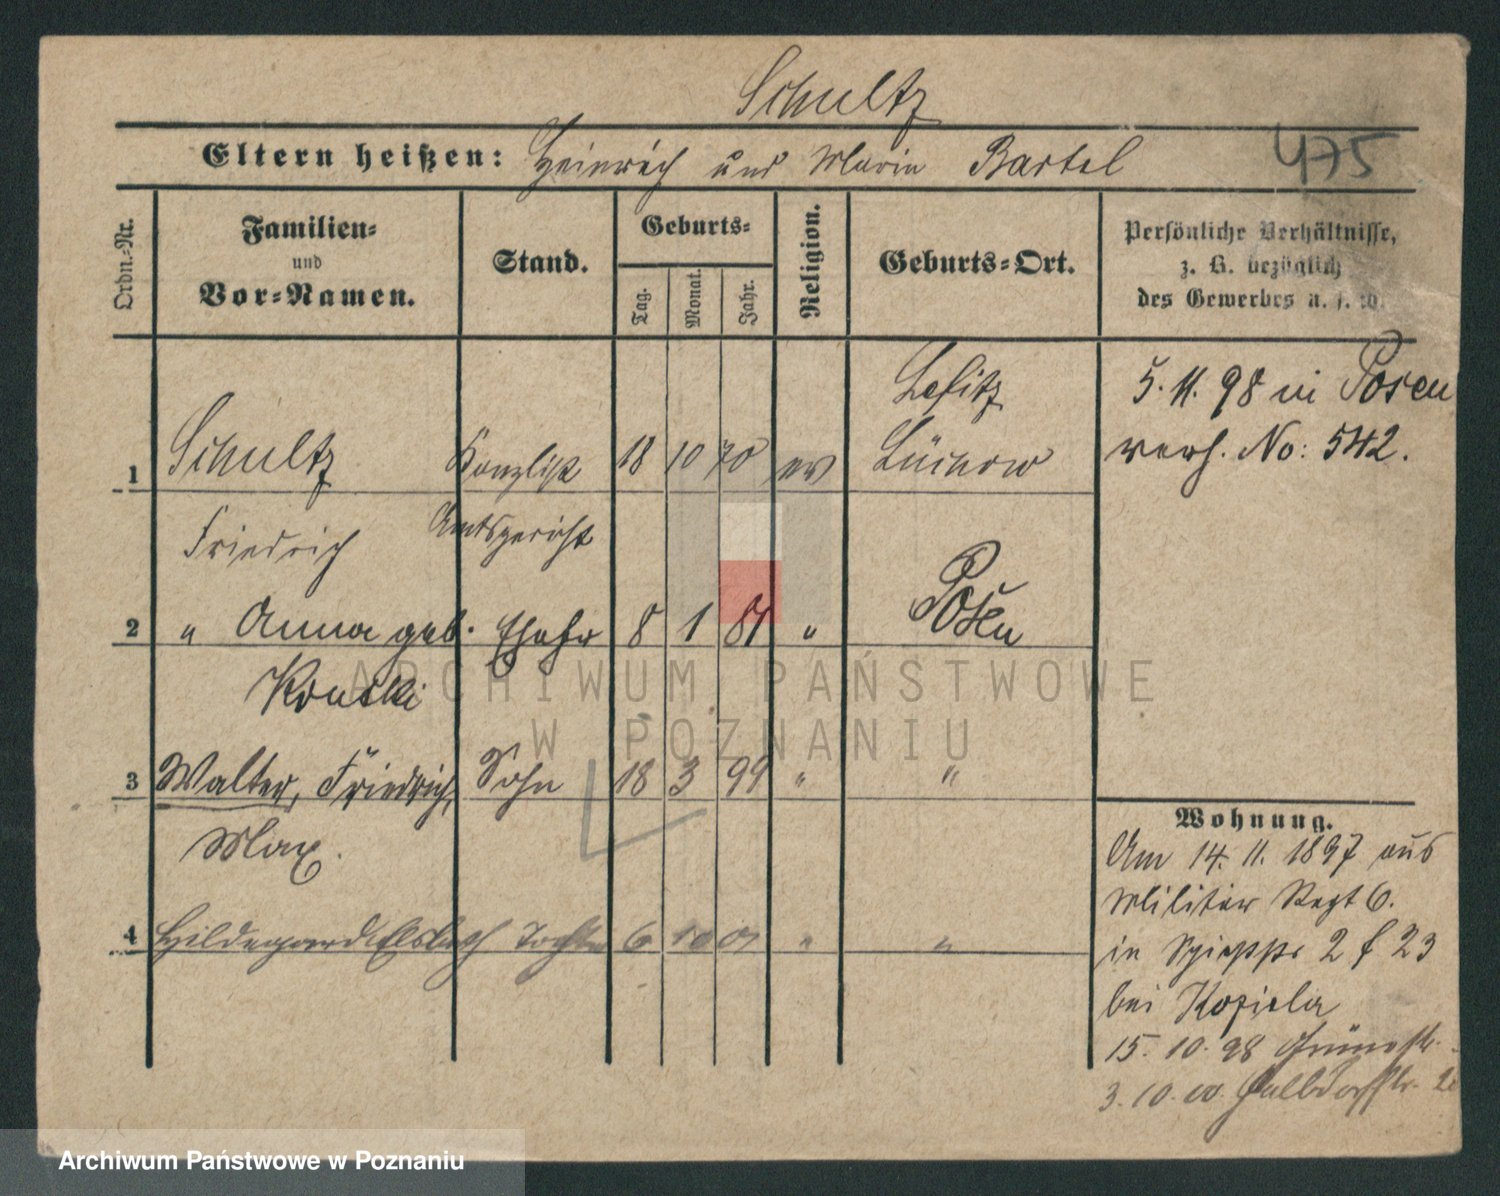 Schultz
Eltern heißen: Heinrich und Marie Bartel
475
Ordn.-Nr.
Familien-
und
Vor-Namen.
Stand.
Geburts-
Tag.
Monat.
Jahr.
Religion.
Geburts-Ort.
Persönliche Verhältnisse,
z. B. bezüglich
des Gewerbes u. s. w.
1 Schultz Kanzlist 18 10 70 ev
Friedrich Amtsgericht
5. 11. 98 in Posen
verh. No: 542.
2 " Anna geb. Ehefr 8 1 81 " Posen
3 Walter, Friedrich, Sohn 18 3 99 " "
Max.
4 Hildegard Elsbeth Tochter 6 10 01 " "
Wohnung.
Am 14. 11. 1897 aus
Militär Regt 6.
in 2 f 23
bei Koziela
15. 10. 98 Grünestr.
3. 10. 00
ARCHIWUM PAŃSTWOWE
W POZNANIU
Archiwum Państwowe w Poznaniu